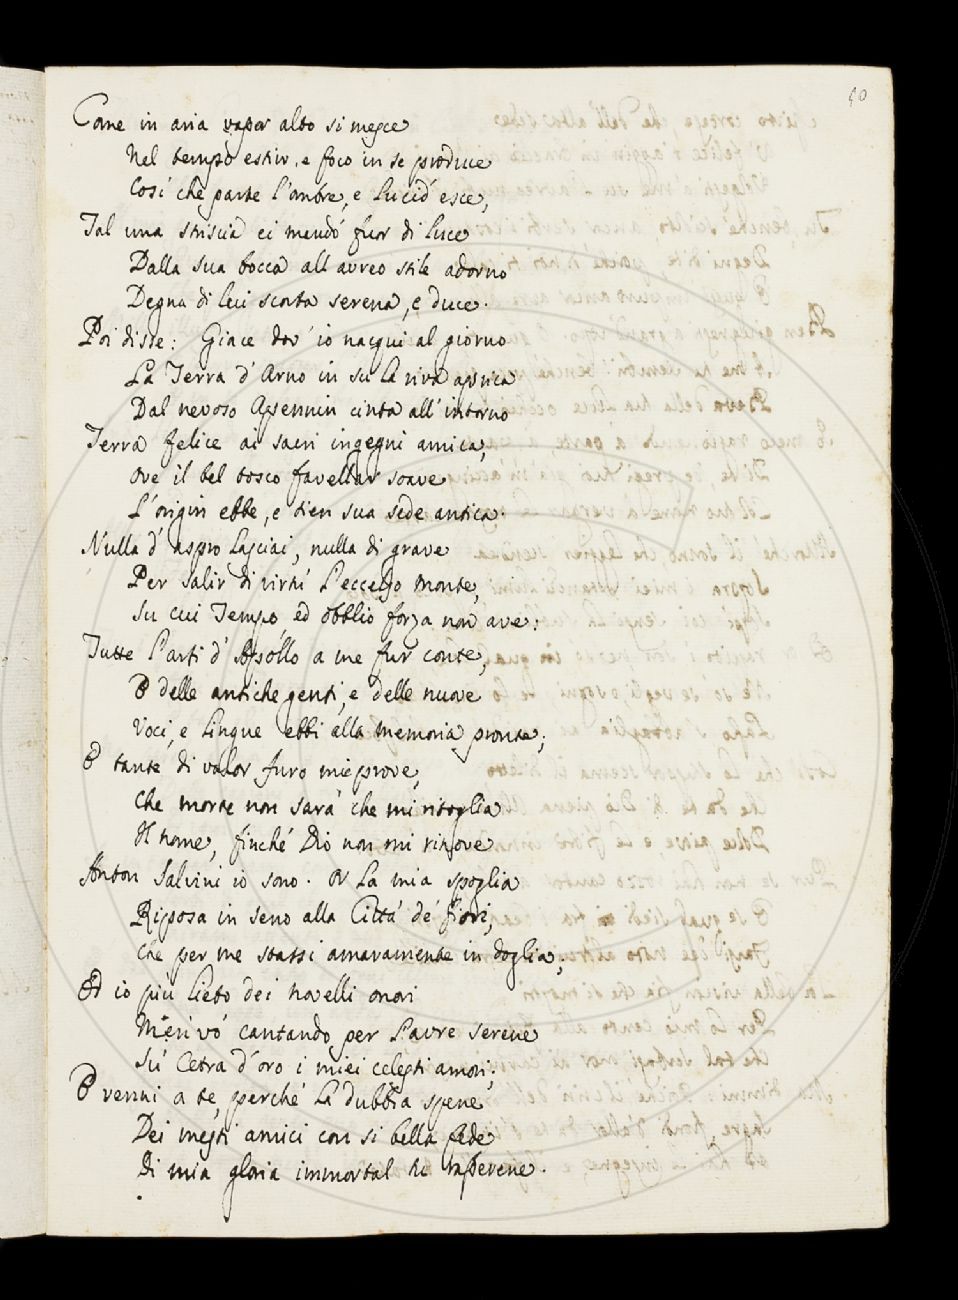 50
Come in aria vapor alto si mesce
Nel tempo estivo, e foco in se produce
Così che parte l'ombre, e lucid' esce,
Tal una striscia ei mandò fuor di luce
Dalla sua bocca all' aureo stile adorno
Degna di lui scorta serena, e duce.
Poi disse: Giace dov' io nacqui al giorno
La Terra d' Arno in su la riva aprica
Dal nevoso Apennin cinta all' intorno
Terra felice ai sacri ingegni amica,
Ove il bel tosco favellar soave
L'origin ebbe, e tien sua sede antica.
Nulla d' aspro lasciai, nulla di grave
Per salir di virtù l'eccelso monte,
Su cui Tempo, ed obblio forza non ave:
Tutte l'arti d' Apollo a me fur conte,
E delle antiche genti, e delle nuove
Voci, e lingue ebbi alla memoria pronte;
E tante di valor furo mie prove,
Che morte non sarà che mi ritoglia
Il nome, finchè Dio non mi rinove
Anton Salvini io sono. Or la mia spoglia
Riposa in seno alla Città de' fiori,
Che per me stassi amaramente in doglia;
Ed io più lieto dei novelli onori
M'en vò cantando per l'aure serene
Sù Cetra d'oro i miei celesti amori;
E venni a te, perchè la dubbia spene
Dei mesti amici con si bella fede
Di mia gloria immortal tu rasserene.